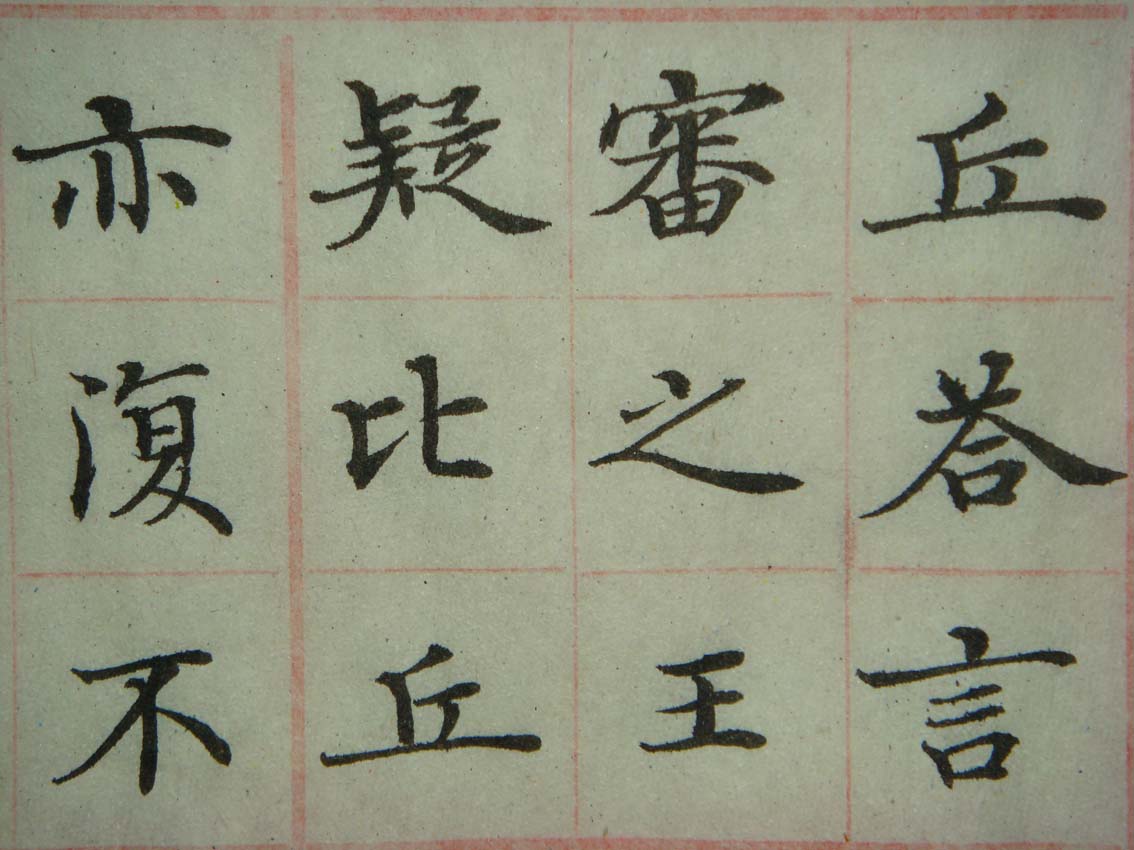 丘荅言
審之王
疑比丘
亦復不